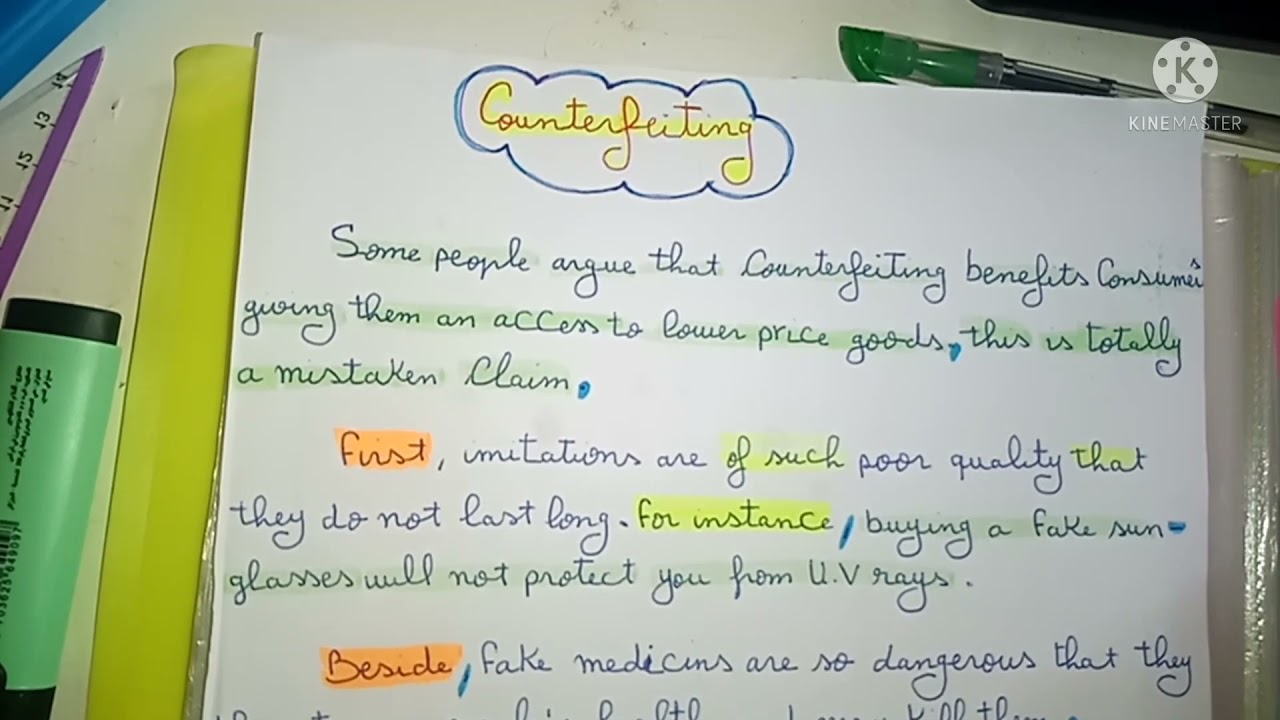 Counterfeiting
Some people argue that Counterfeiting benefits Consumers
giving them an access to lower price goods, this is totally
a mistaken Claim.
First, imitations are of such poor quality that
they do not last long. For instance, buying a fake sun-
glasses will not protect you from U.V rays.
Beside, fake medicins are so dangerous that they
kill them.
14
13
11
K
KINEMASTER